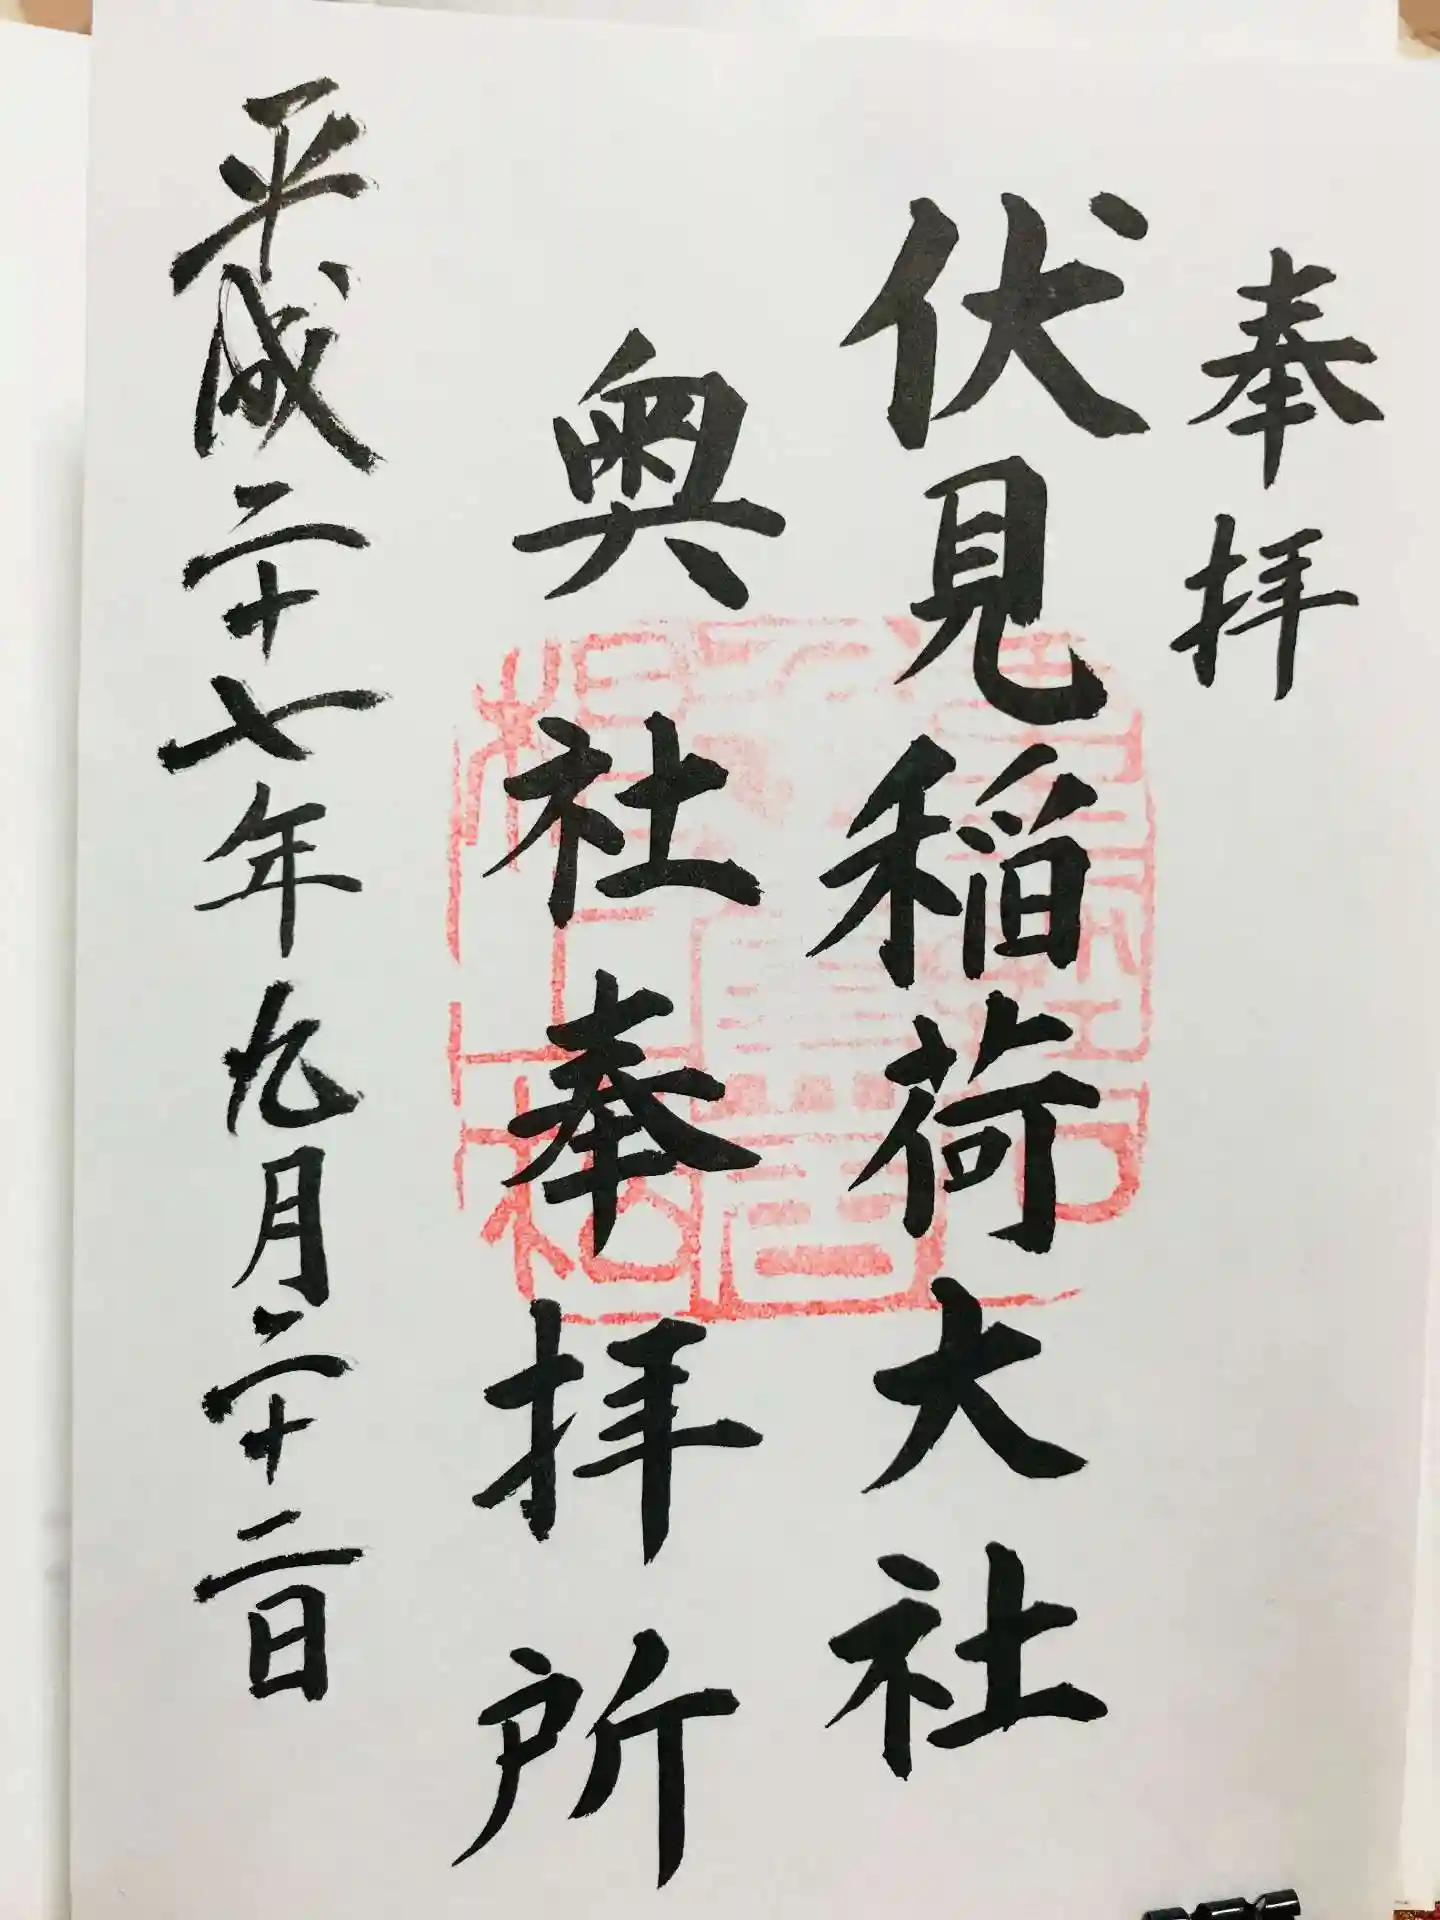 奉拝
伏見稲荷大社
奥社奉拝所
平成二十七年九月二十二日